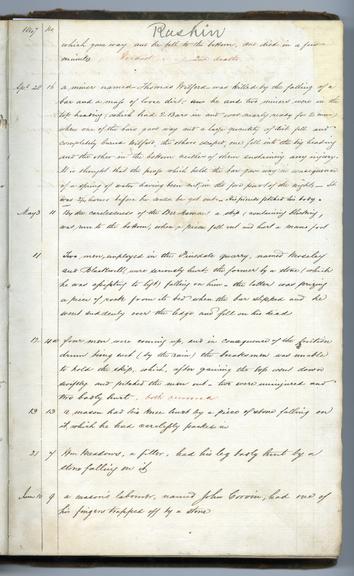 Ruskin
1837 No.
which gave way and he fell to the bottom, and died in a few
minutes Verdict death
Apl 28 16 a miner named Thomas Wilford was killed by the falling of a
bar and a mass of loose dirt. and he and two miners were in the
top heading, which had 2 Bars in and was nearly ready for
when one of the bars gave way and a large quantity of dirt fell and
completely buried Wilford, the others escaped, one fell into the big heading
and the other in the bottom neither of them sustaining any injury.
It is thought that the prop which held the bar gave way in consequence
of a spring of water having been met in the fore part of the night. It
was hours before he could be got out. His friends fetched his body.
May 3 11 By the carelessness of the Banksman a skip, containing
was sent to the bottom, when a piece fell out and hurt a mans foot
11 Two men, employed in the quarry, named Moseley
and Blackwell, were seriously hurt, the former by a stone (which
he was assisting to lift) falling on him. the latter was prizing
a piece of rock from its bed when the bar slipped and he
went suddenly over the ledge and fell on his head
12 four men were coming up, and in consequence of the friction
drum being wet (by the rain) the breaksman was unable
to hold the skip, which, after gaining the top went down
swiftly and pitched the men out. two were uninjured and
two badly hurt. both recovered
19 13 a mason had his knee hurt by a piece of stone falling on
it which he had carelessly packed in
21 7 Wm Meadows, a filler, had his leg badly hurt by a
stone falling on it
June 10 9 a mason's labourer, named John Corvin, had one of
his fingers snapped off by a stone